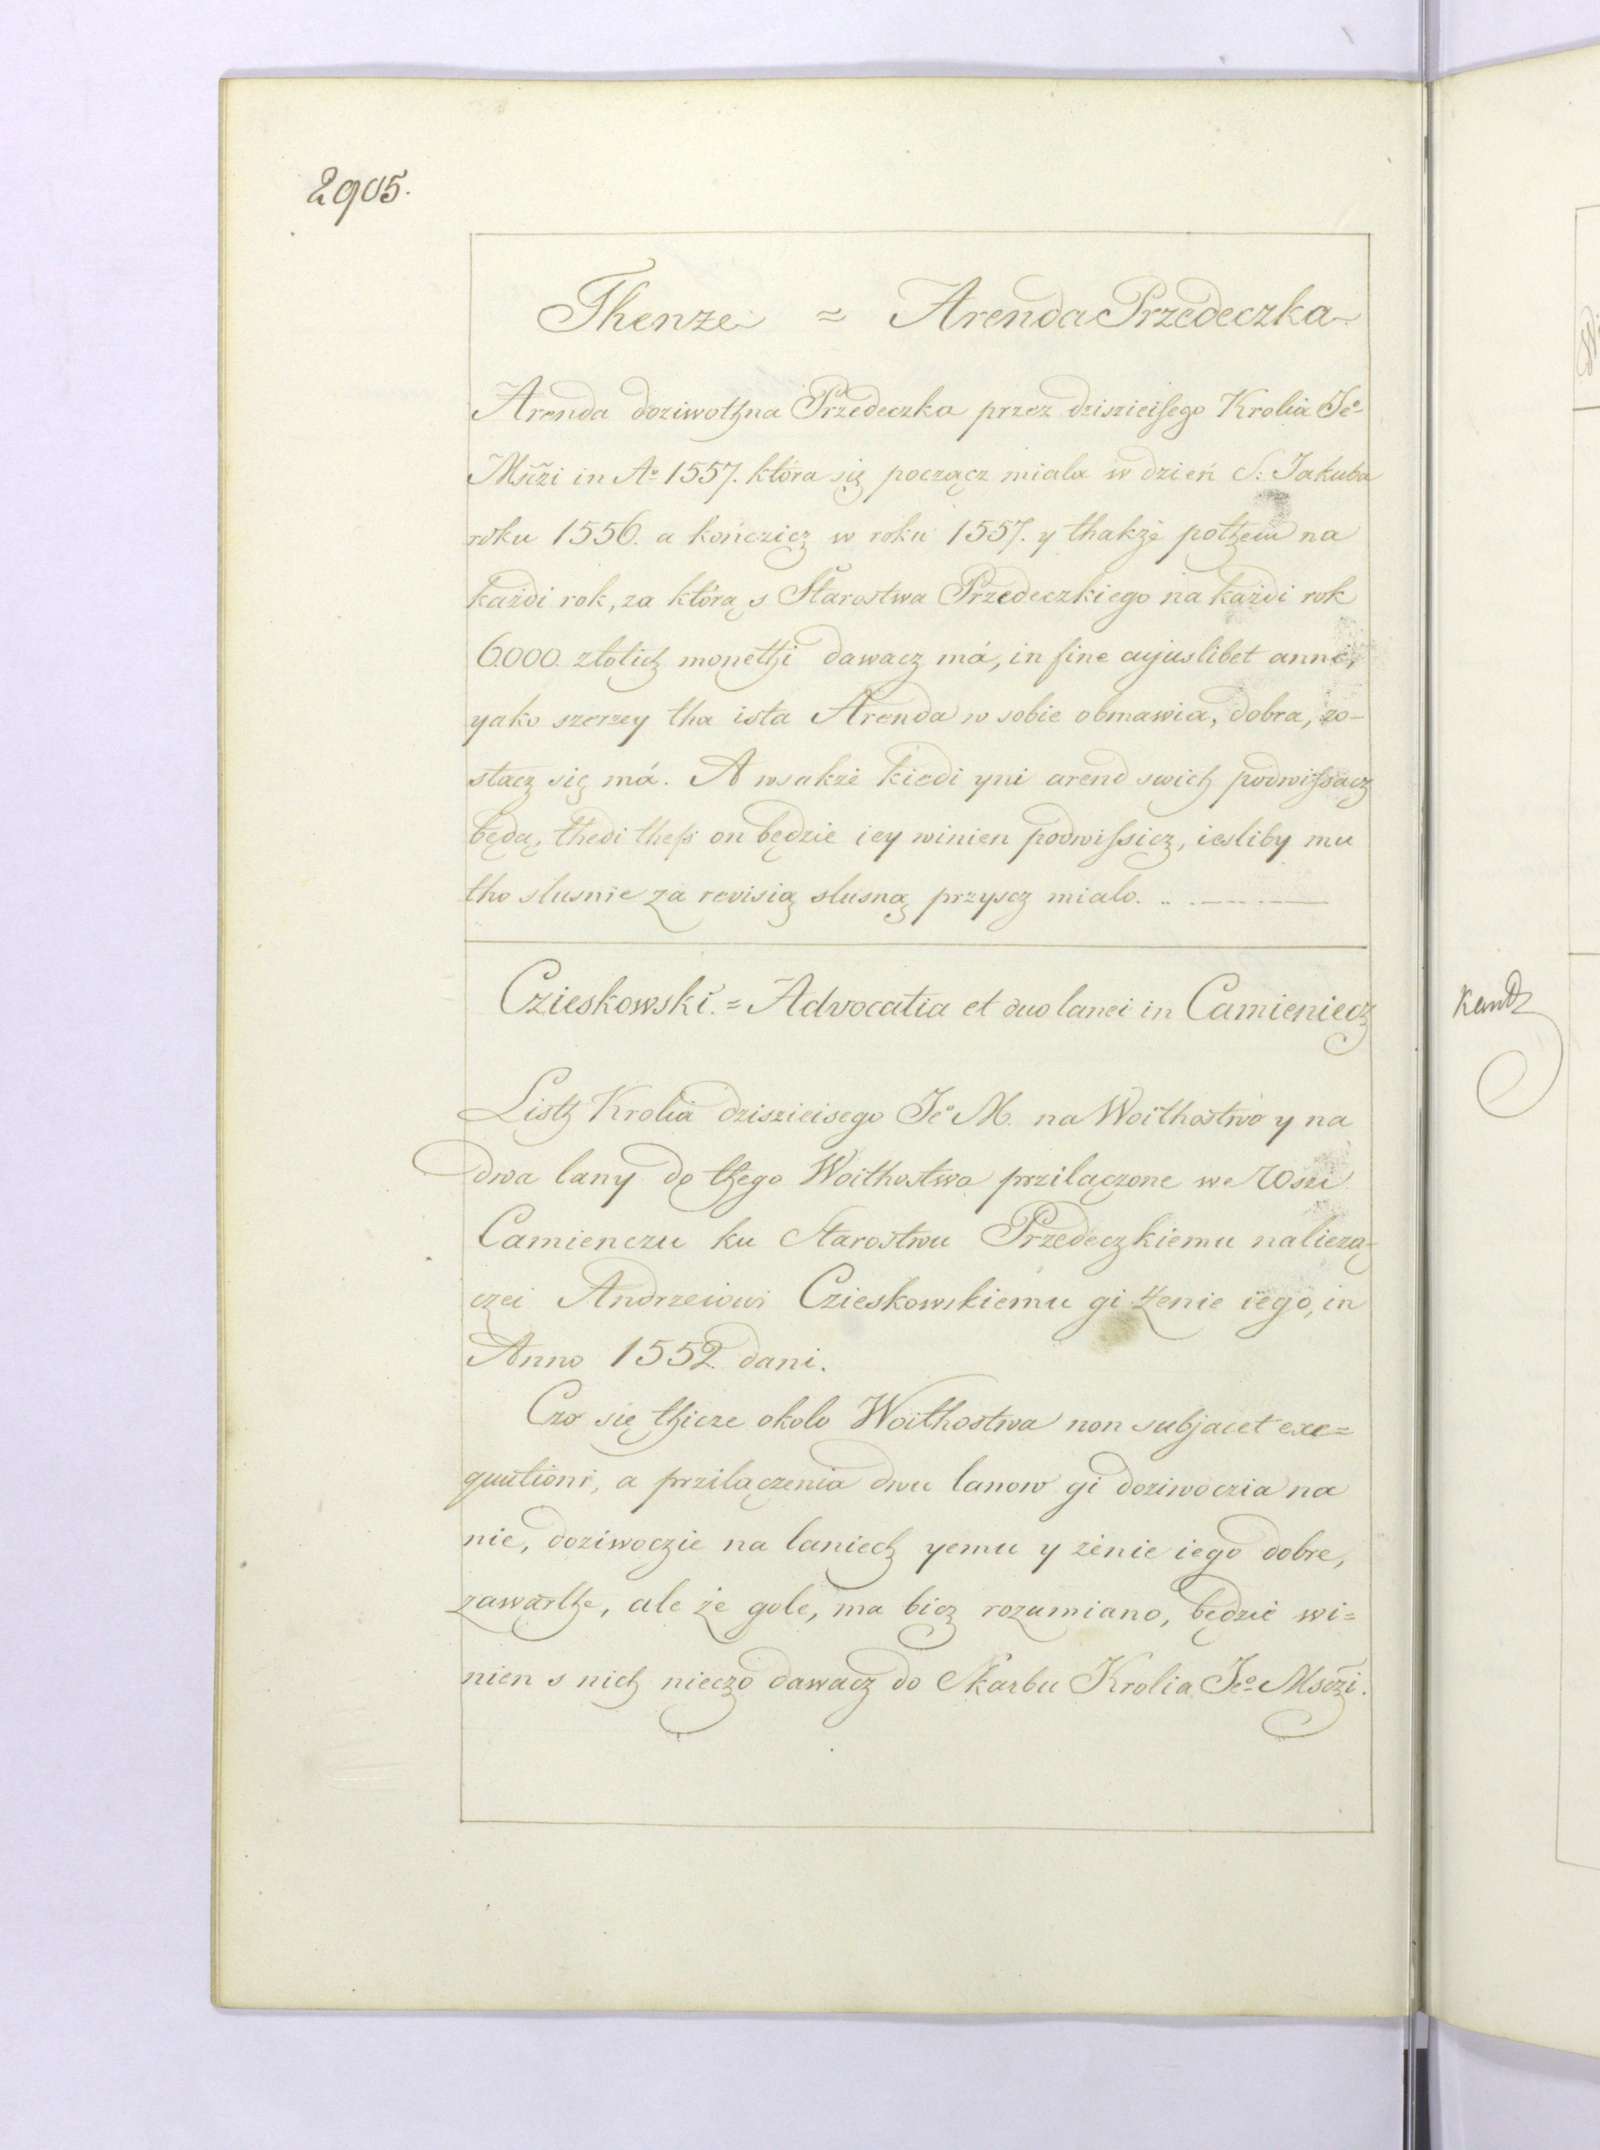 2905.
Thenze = Arenda Przedeczka
Arenda doziwothna Przedeczka przez dziszieisego Krolia Je°
Mści in A° 1557. która się począcz miala w dzień S: Jakuba
roku 1556. a kończicz w roku 1557. y thakże pothem na
każdi rok, za którą s Starostwa Przedeczkiego na każdi rok
6000. złotich monethi dawacz má, in fine cujuslibet anni,
yako szerzey tha ista Arenda w sobie obmawia, dobra, zo-
stacz się má. A wsakże kiedi yni arend swich podwissacz
będą, thedi thesz on będzie iey winien podwissicz, iesliby mu
tho slusnie za revisią slusną przyscz mialo.
Czieskowski. = Advocatia et duo lanei in Camieniecz
Listh Krolia dziszieisego Je° M. na Woithostwo y na
dwa lany do thego Woithostwa przilączone we Wszi
Camienczu ku Starostwu Przedeczkiemu należą-
czei Andrzeiowi Czieskowskiemu gi żenie iego, in
Anno 1552 dani.
Czo się thicze okolo Woithostwa non subjacet exe=
quutioni, a przilączenia dwu lanow gi doziwoczia na
nie, doziwoczie na laniech yemu y żenie iego dobre,
zawarthe, ale że gole, ma bicz rozumiano, będzie wi=
nien s nich nieczo dawacz do Skarbu Krolia Je° Msczi.